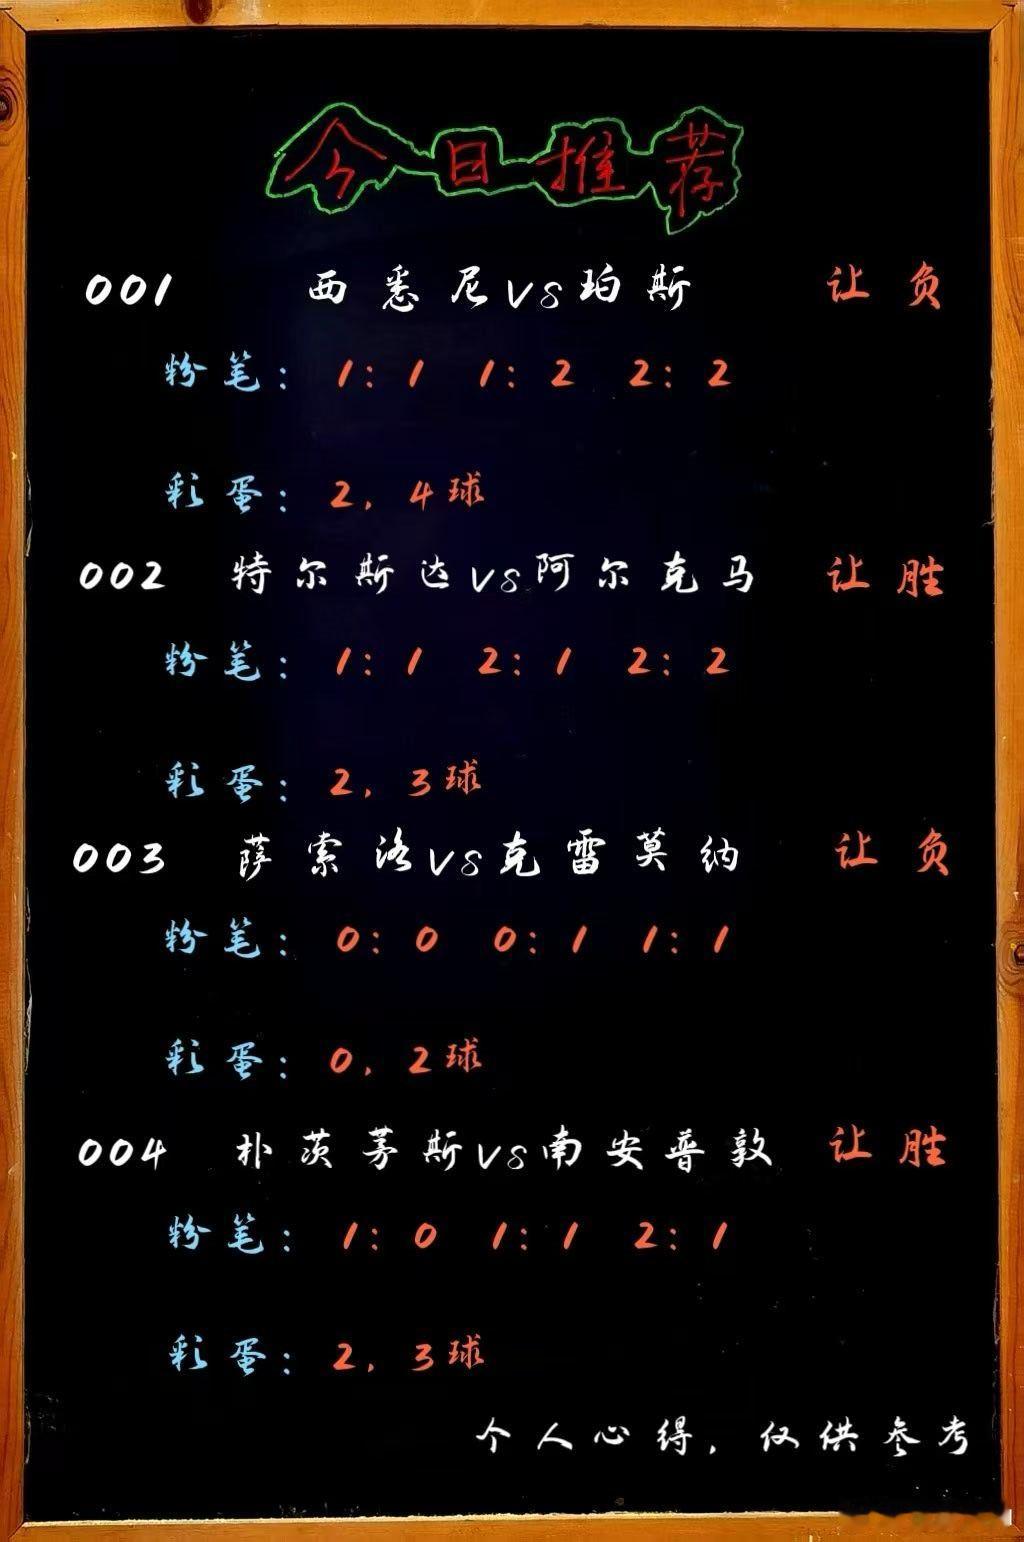 今日推荐
001 西悉尼vs珀斯 让负
粉笔：1:1 1:2 2:2
彩蛋：2，4球
002 特尔斯达vs阿尔克马 让胜
粉笔：1:1 2:1 2:2
彩蛋：2，3球
003 萨索洛vs克雷莫纳 让负
粉笔：0:0 0:1 1:1
彩蛋：0，2球
004 朴茨茅斯vs南安普敦 让胜
粉笔：1:0 1:1 2:1
彩蛋：2，3球
个人心得，仅供参考